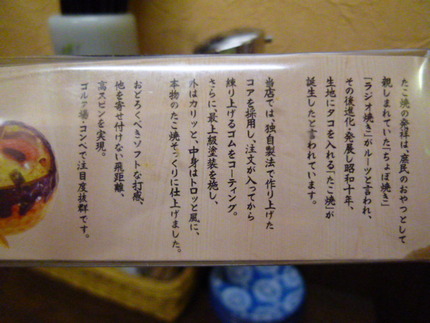 たこ焼の発祥は、庶民のおやつとして
親しまれていた「ちょぼ焼き」
「ラジオ焼き」がルーツと言われ、
その後進化・発展し昭和十年、
生地にタコを入れる「たこ焼」が
誕生したと言われています。
当店では、独自製法で作り上げた
コアを採用し、注文が入ってから
練り上げるゴムをコーティング。
さらに、最上級塗装を施し、
外はカリッと、中身はトロッと風に、
本物のたこ焼そっくりに仕上げました。
おどろくべきソフトな打感、
他を寄せ付けない飛距離、
高スピンを実現。
ゴルフ場・コンペで注目度抜群です。